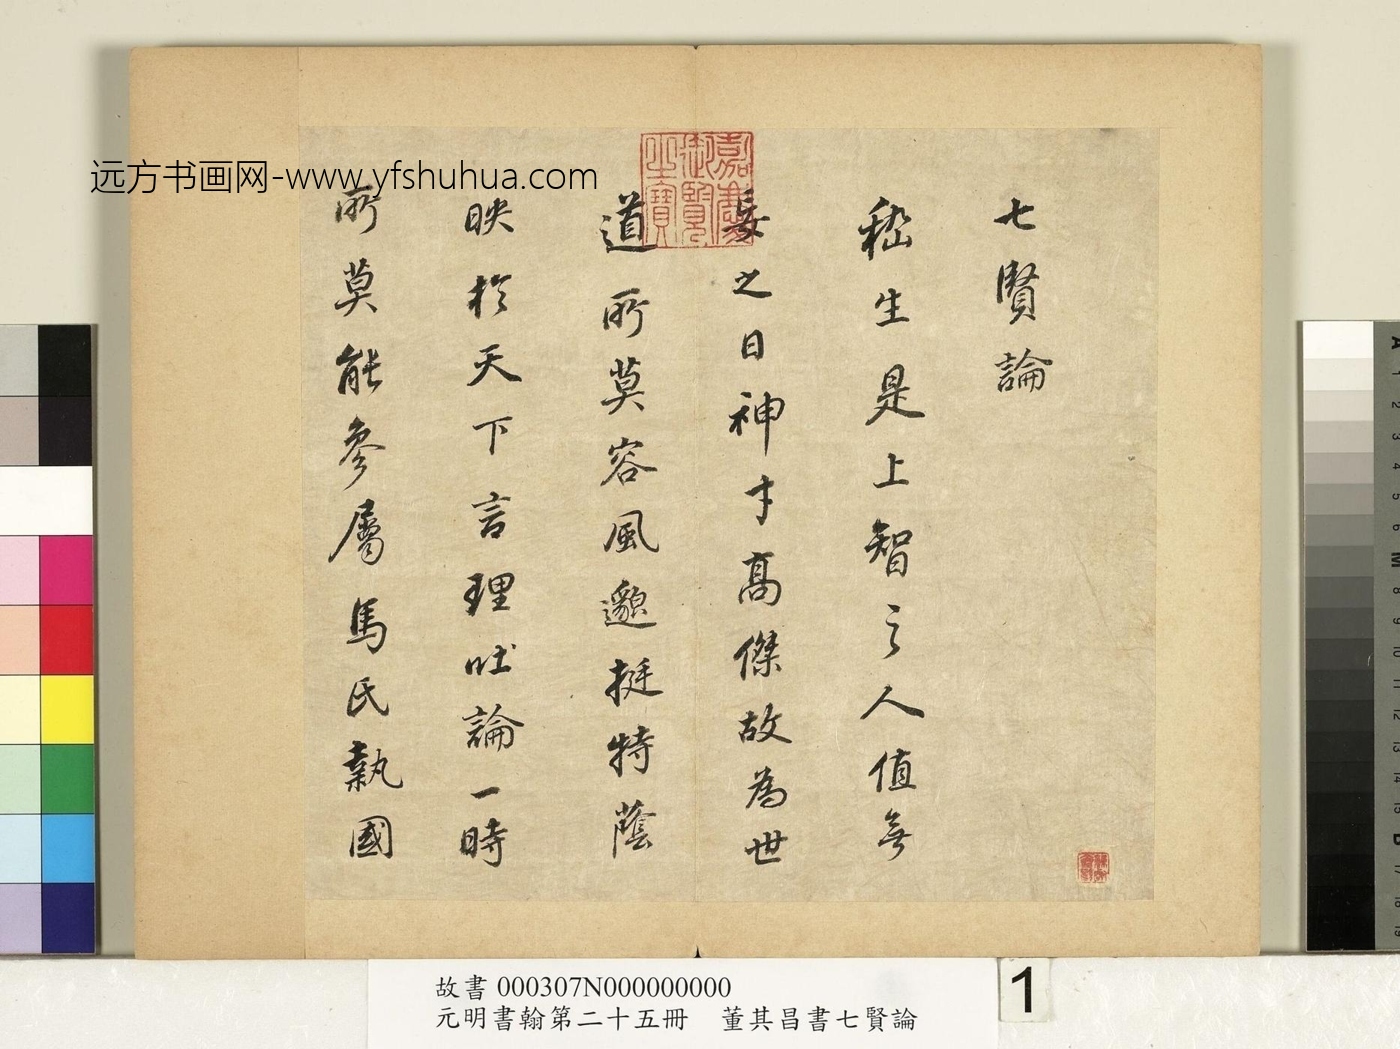 远方书画网-www.yfshuhua.com
七賢論
嵇生是上智之人值無
妄之日神才高傑故為世
道所莫容風邈挺特蔭
映於天下言理吐論一時
所莫能參屬馬氏執國
嘉慶御覽之寶
故書 000307N000000000
元明書翰第二十五冊 董其昌書七賢論
1